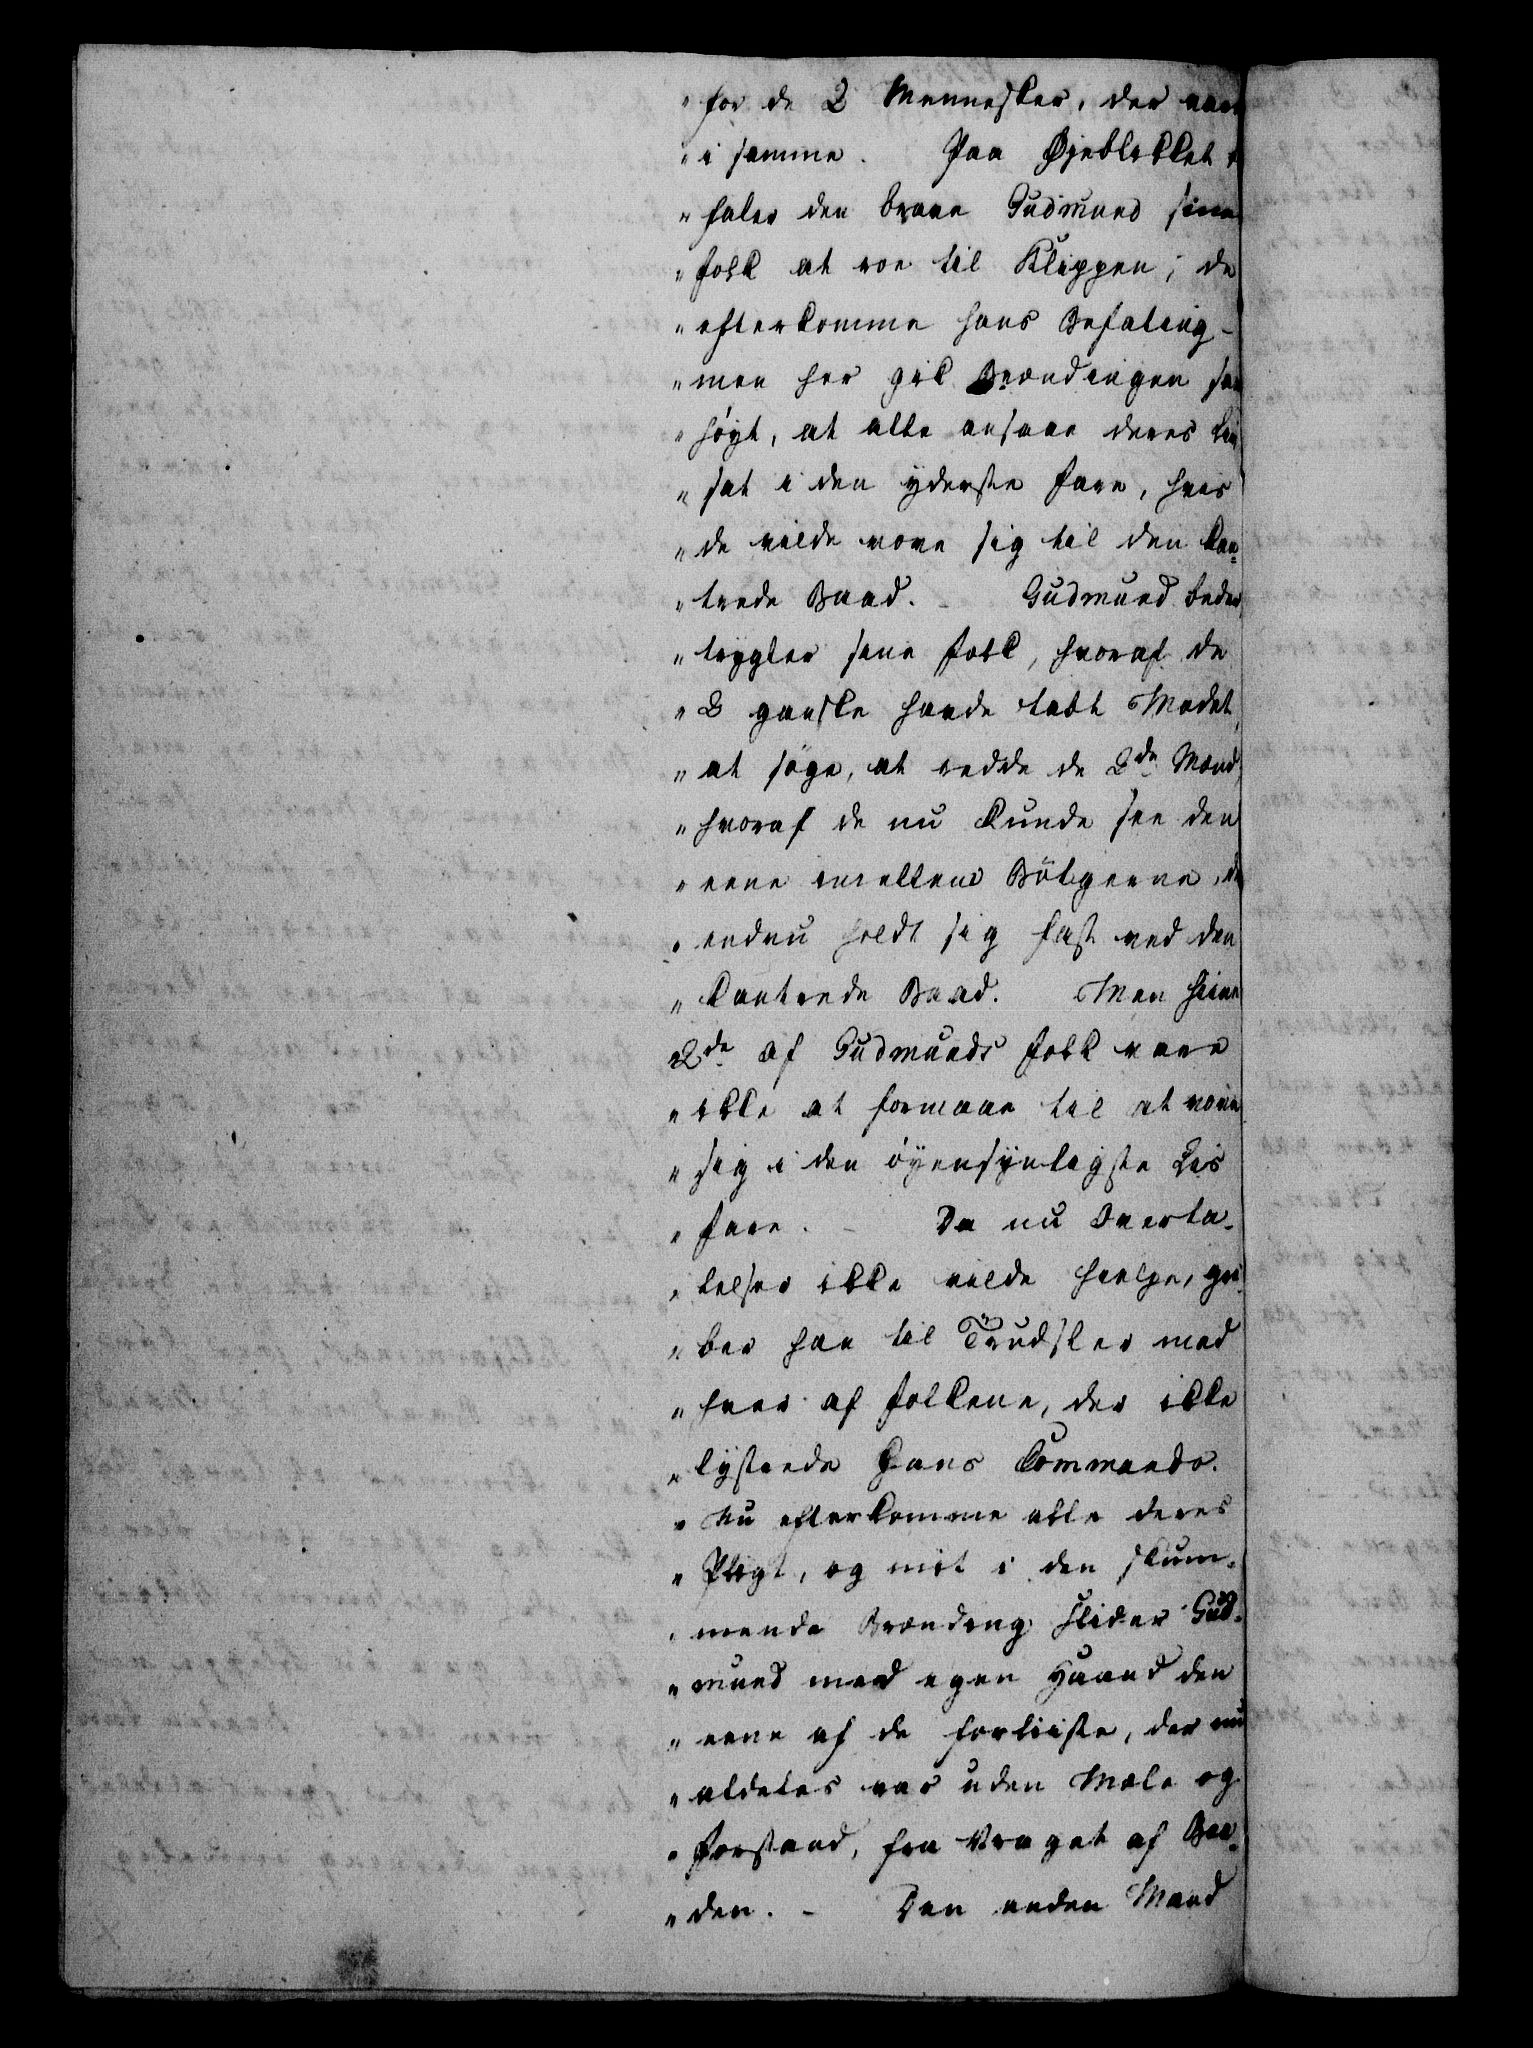 " for de 2 Mennesker, der vare
" i samme. Paa Øjeblikket
" faler den brave Gudmund sine
" folk at roe til Klippen; de
" efterkomme hans Befaling -
" men her gik Brændingen saa
" høyt, at alle ansaae deres Liv
" sat i den yderste fare, hvis
" de vilde vove sig til den kan=
" trede Baad. - Gudmund beder,
" trygler sine folk, hvoraf de
" 2 ganske havde tabt Modet,
" at søge, at redde de 2de Mænd,
" hvoraf de nu kunde see den
" eene imellem Bølgerne,
" endnu holdt sig fast ved den
" kantrede Baad. Men hiine
2de af Gudmunds folk vare
" ikke at formaae til at vove
" sig i den øyensynligste Livs
" fare. - Da nu Overta-
" lelser ikke vilde hielpe, gri-
" ber han til Trudsler mod
" hver af folkene, der ikke
" lystrede hans Commando.
" Nu efterkomme alle deres
" Pligt, og mit i den skum-
" mende Brænding slider Gud-
" mund med egen Haand den
" eene af de forliiste, der nu
" aldeles var uden Mæle og
" forstand, fra Vraget af Baa-
" den. - Den anden Mand